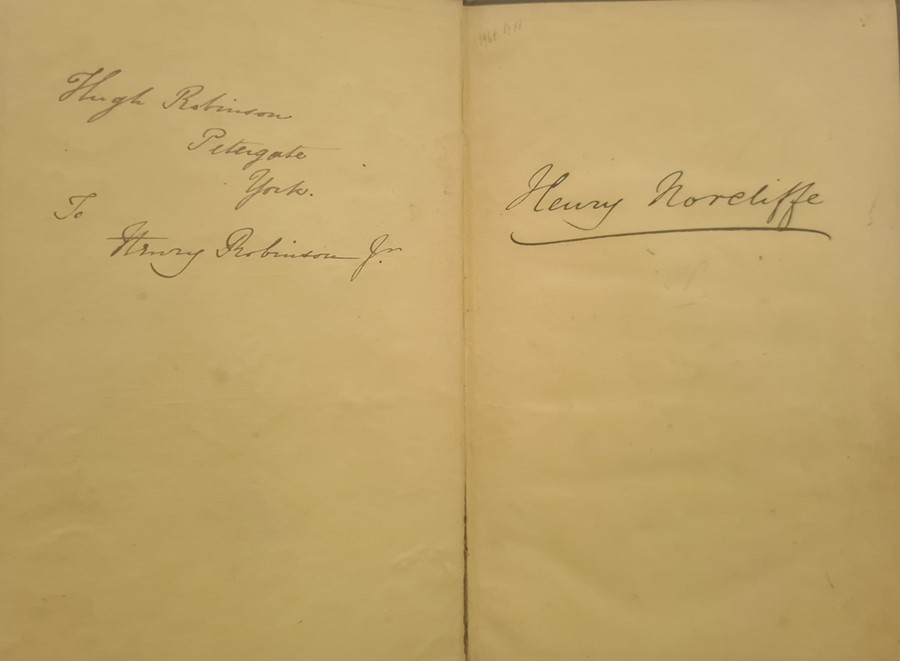 Hugh Robinson
Petergate
York.
To
Henry Robinson Jr.
Henry Norcliffe